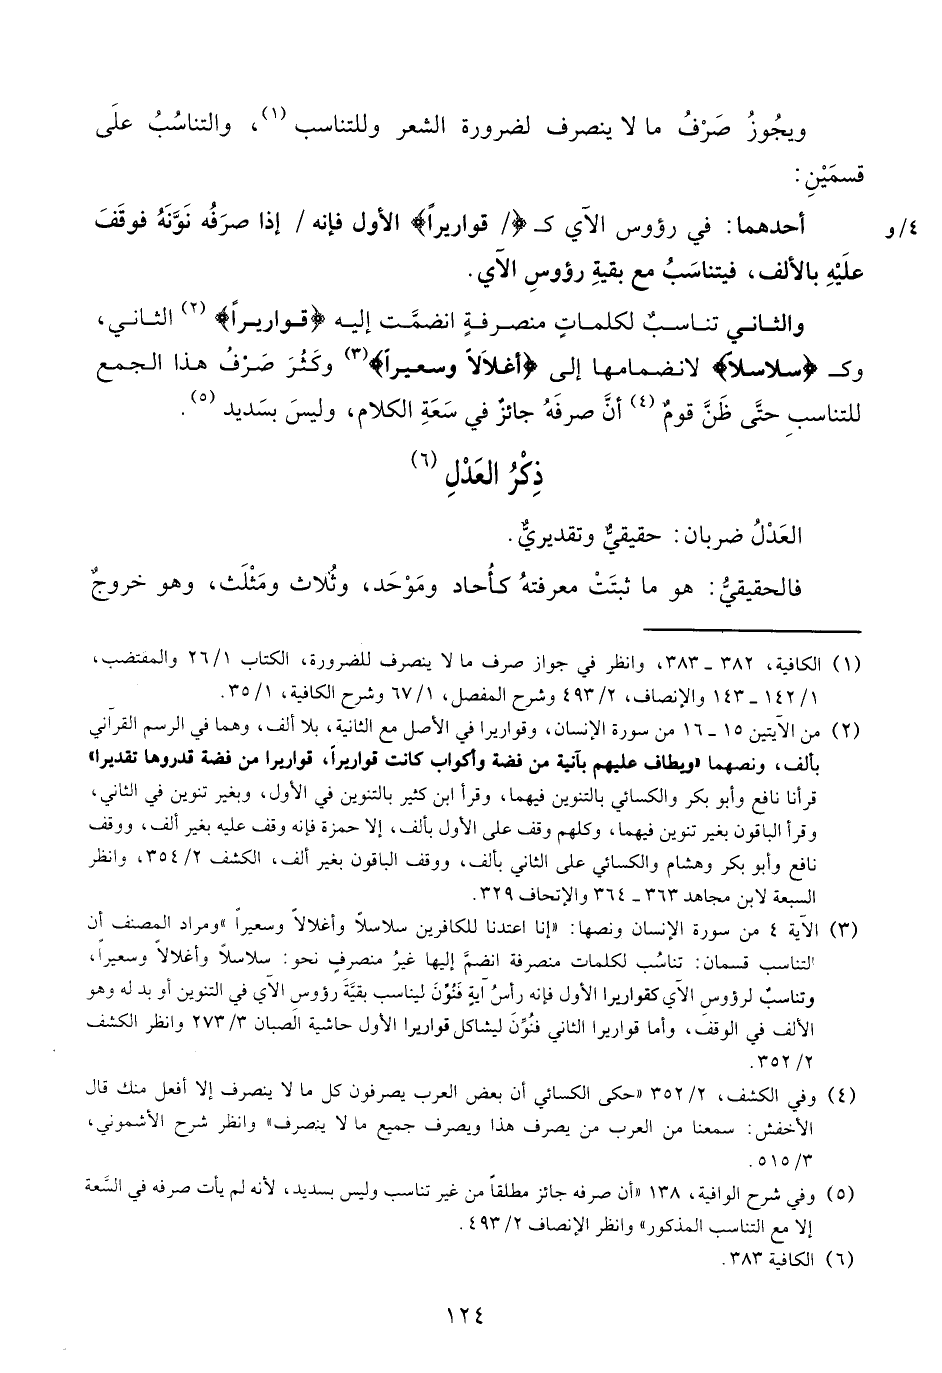 ويجُوزُ صَرْفُ ما لا ينصرف لضرورة الشعر وللتناسب (١)، والتناسُبُ علَى
قسمَيْنِ:
٤/و أحدهما: في رؤوس الآي كـ ﴿/ قواريراً﴾ الأول فإنه / إذا صرَفُه نَوَّنَهُ فوقَفَ
علَيْهِ بالألف، فيتناسَبُ مع بقيةِ رؤوسِ الآي.
والثاني تناسبٌ لكلماتٍ منصرفةٍ انضمَّت إليه ﴿قواريراً﴾ (٢) الثاني،
وكـ ﴿سلاسلاً﴾ لانضمامها إلى ﴿أغلالاً وسعيراً﴾(٣) وكَثُرَ صَرْفُ هذا الجمع
للتناسبِ حتَّى ظَنَّ قومٌ (٤) أنَّ صرفَهُ جائزٌ في سَعَةِ الكلام، وليسَ بسَديد (٥).
ذِكْرُ العَدْلِ (٦)
العَدْلُ ضربان: حقيقيٌّ وتقديريٌّ.
فالحقيقيُّ: هو ما ثبتَتْ معرفتهُ كأُحاد ومَوْحَد، وثُلاث ومَثْلَث، وهو خروجٌ
(١) الكافية، ٣٨٢ ـ ٣٨٣، وانظر في جواز صرف ما لا ينصرف للضرورة، الكتاب ٢٦/١ والمقتضب،
١٤٢/١ ـ ١٤٣ والإنصاف، ٤٩٣/٢ وشرح المفصل، ٦٧/١ وشرح الكافية، ٣٥/١.
(٢) من الآيتين ١٥ ـ ١٦ من سورة الإنسان، وقواريرا في الأصل مع الثانية، بلا ألف، وهما في الرسم القرآني
بألف، ونصهما «ويطاف عليهم بآنية من فضة وأكواب كانت قواريراً، قواريرا من فضة قدروها تقديرا»
قرأنا نافع وأبو بكر والكسائي بالتنوين فيهما، وقرأ ابن كثير بالتنوين في الأول، وبغير تنوين في الثاني،
وقرأ الباقون بغير تنوين فيهما، وكلهم وقف على الأول بألف، إلا حمزة فإنه وقف عليه بغير ألف، ووقف
نافع وأبو بكر وهشام والكسائي على الثاني بألف، ووقف الباقون بغير ألف، الكشف ٣٥٤/٢، وانظر
السبعة لابن مجاهد ٣٦٣ ـ ٣٦٤ والإتحاف ٣٢٩.
(٣) الآية ٤ من سورة الإنسان ونصها: «إنا اعتدنا للكافرين سلاسلاً وأغلالاً وسعيراً »ومراد المصنف أن
التناسب قسمان: تناسُب لكلمات منصرفة انضمَّ إليها غيرُ منصرفٍ نحو: سلاسلاً وأغلالاً وسعيراً،
وتناسبٌ لرؤوس الآي كقواريرا الأول فإنه رأسُ آيةٍ فَنُوِّنَ ليناسب بقيَّةَ رؤوس الآي في التنوين أو بد له وهو
الألف في الوقف، وأما قواريرا الثاني فنُوِّنَ ليشاكل قواريرا الأول حاشية الصبان ٢٧٣/٣ وانظر الكشف
٣٥٢/٢.
(٤) وفي الكشف، ٣٥٢/٢ «حكى الكسائي أن بعض العرب يصرفون كل ما لا ينصرف إلا أفعل منك قال
الأخفش: سمعنا من العرب من يصرف هذا ويصرف جميع ما لا ينصرف» وانظر شرح الأشموني،
٥١٥/٣.
(٥) وفي شرح الوافية، ١٣٨ «أن صرفه جائز مطلقاً من غير تناسب وليس بسديد، لأنه لم يأت صرفه في السَّعة
إلا مع التناسب المذكور» وانظر الإنصاف ٤٩٣/٢.
(٦) الكافية ٣٨٣.
١٢٤